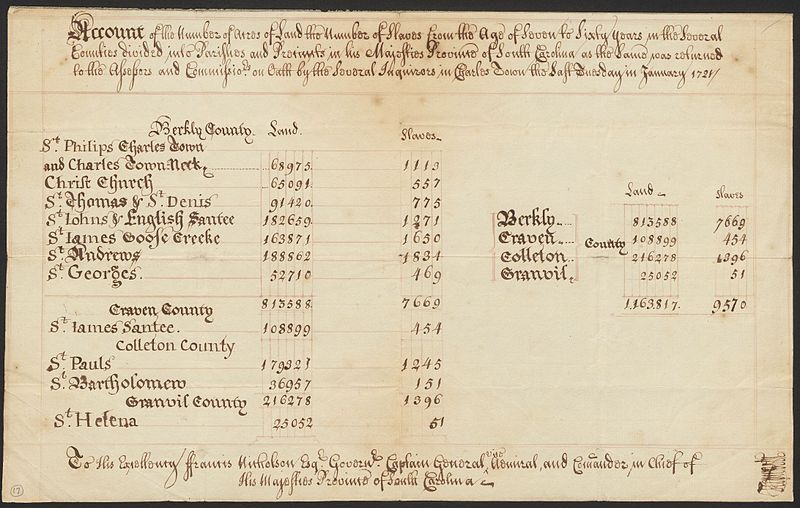 Account of the Number of Acres of Land the Number of Slaves from the Age of Seven to Sixty Years in the Several
Counties divided into Parishes and Precincts in his Majesties Province of South Carolina as the Same was returned
to the Assessors and Commissio.rs on Oath by the Several Inquirors in Charles Town the Last Tuesday in January 1721/
Berkly County. Land. Slaves.
St. Philips Charles Town
and Charles Town Neck 68975 1113
Christ Church 65091 557
St. Thomas & St. Denis 91420 775
St. Iohns & English Santee 182659 1271
St. Iames Goose Creeke 163871 1650
St. Andrews 188862 1834
St. Georges. 52710 469
813588 7669
Craven County
St. Iames Santee. 108899 454
Colleton County
St. Pauls 179321 1245
St. Bartholomew 36957 151
Granvil County 216278 1396
St. Helena 25052 51
Land Slaves
Berkly 813588 7669
Craven 108899 454
County
Colleton 216278 1396
Granvil 25052 51
1,163,817 9570
To His Excellency Ffrancis Nicholson Esq.r Govern.r Captain General, Vice Admiral, and Comander, in Chief of
His Majesties Province of South Carolina
17